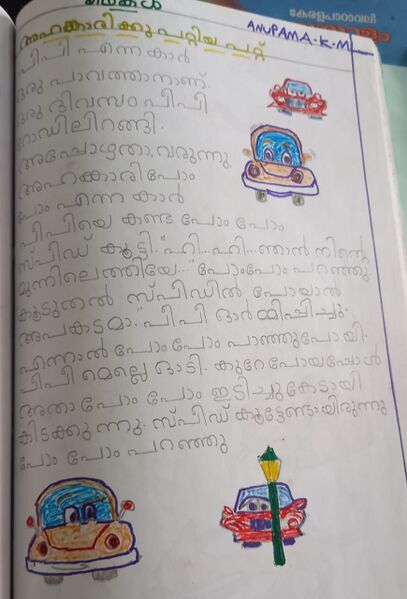 കേരളപാഠാവലി
കഥകൾ
ANUPAMA-K-M
അഹങ്കാരിക്കു പറ്റിയ പറ്റ്
പീപി എന്ന കാർ
ഒരു പാവത്താനാണ്.
ഒരു ദിവസം പീപി
റോഡിലിറങ്ങി.
അപ്പോഴതാ, വരുന്നു.
അഹങ്കാരി പോം
പോം എന്ന കാർ
പീപിയെ കണ്ട പോം പോം
സ്പീഡ് കൂട്ടി. "ഹി...ഹി...ഞാൻ നിന്റെ
മുന്നിലെത്തിയേ..." പോംപോം പറഞ്ഞു.
കൂടുതൽ സ്പീഡിൽ പോയാൽ
അപകടമാ." പീപി ഓർമ്മിപ്പിച്ചു.
എന്നാൽ പോം പോം പാഞ്ഞുപോയി.
പീപി മെല്ലെ ഓടി. കുറേപോയപ്പോൾ
അതാ പോം പോം ഇടിച്ചുകേടായി
കിടക്കുന്നു. സ്പീഡ് കൂട്ടേണ്ടായിരുന്നു
പോം പോം പറഞ്ഞു